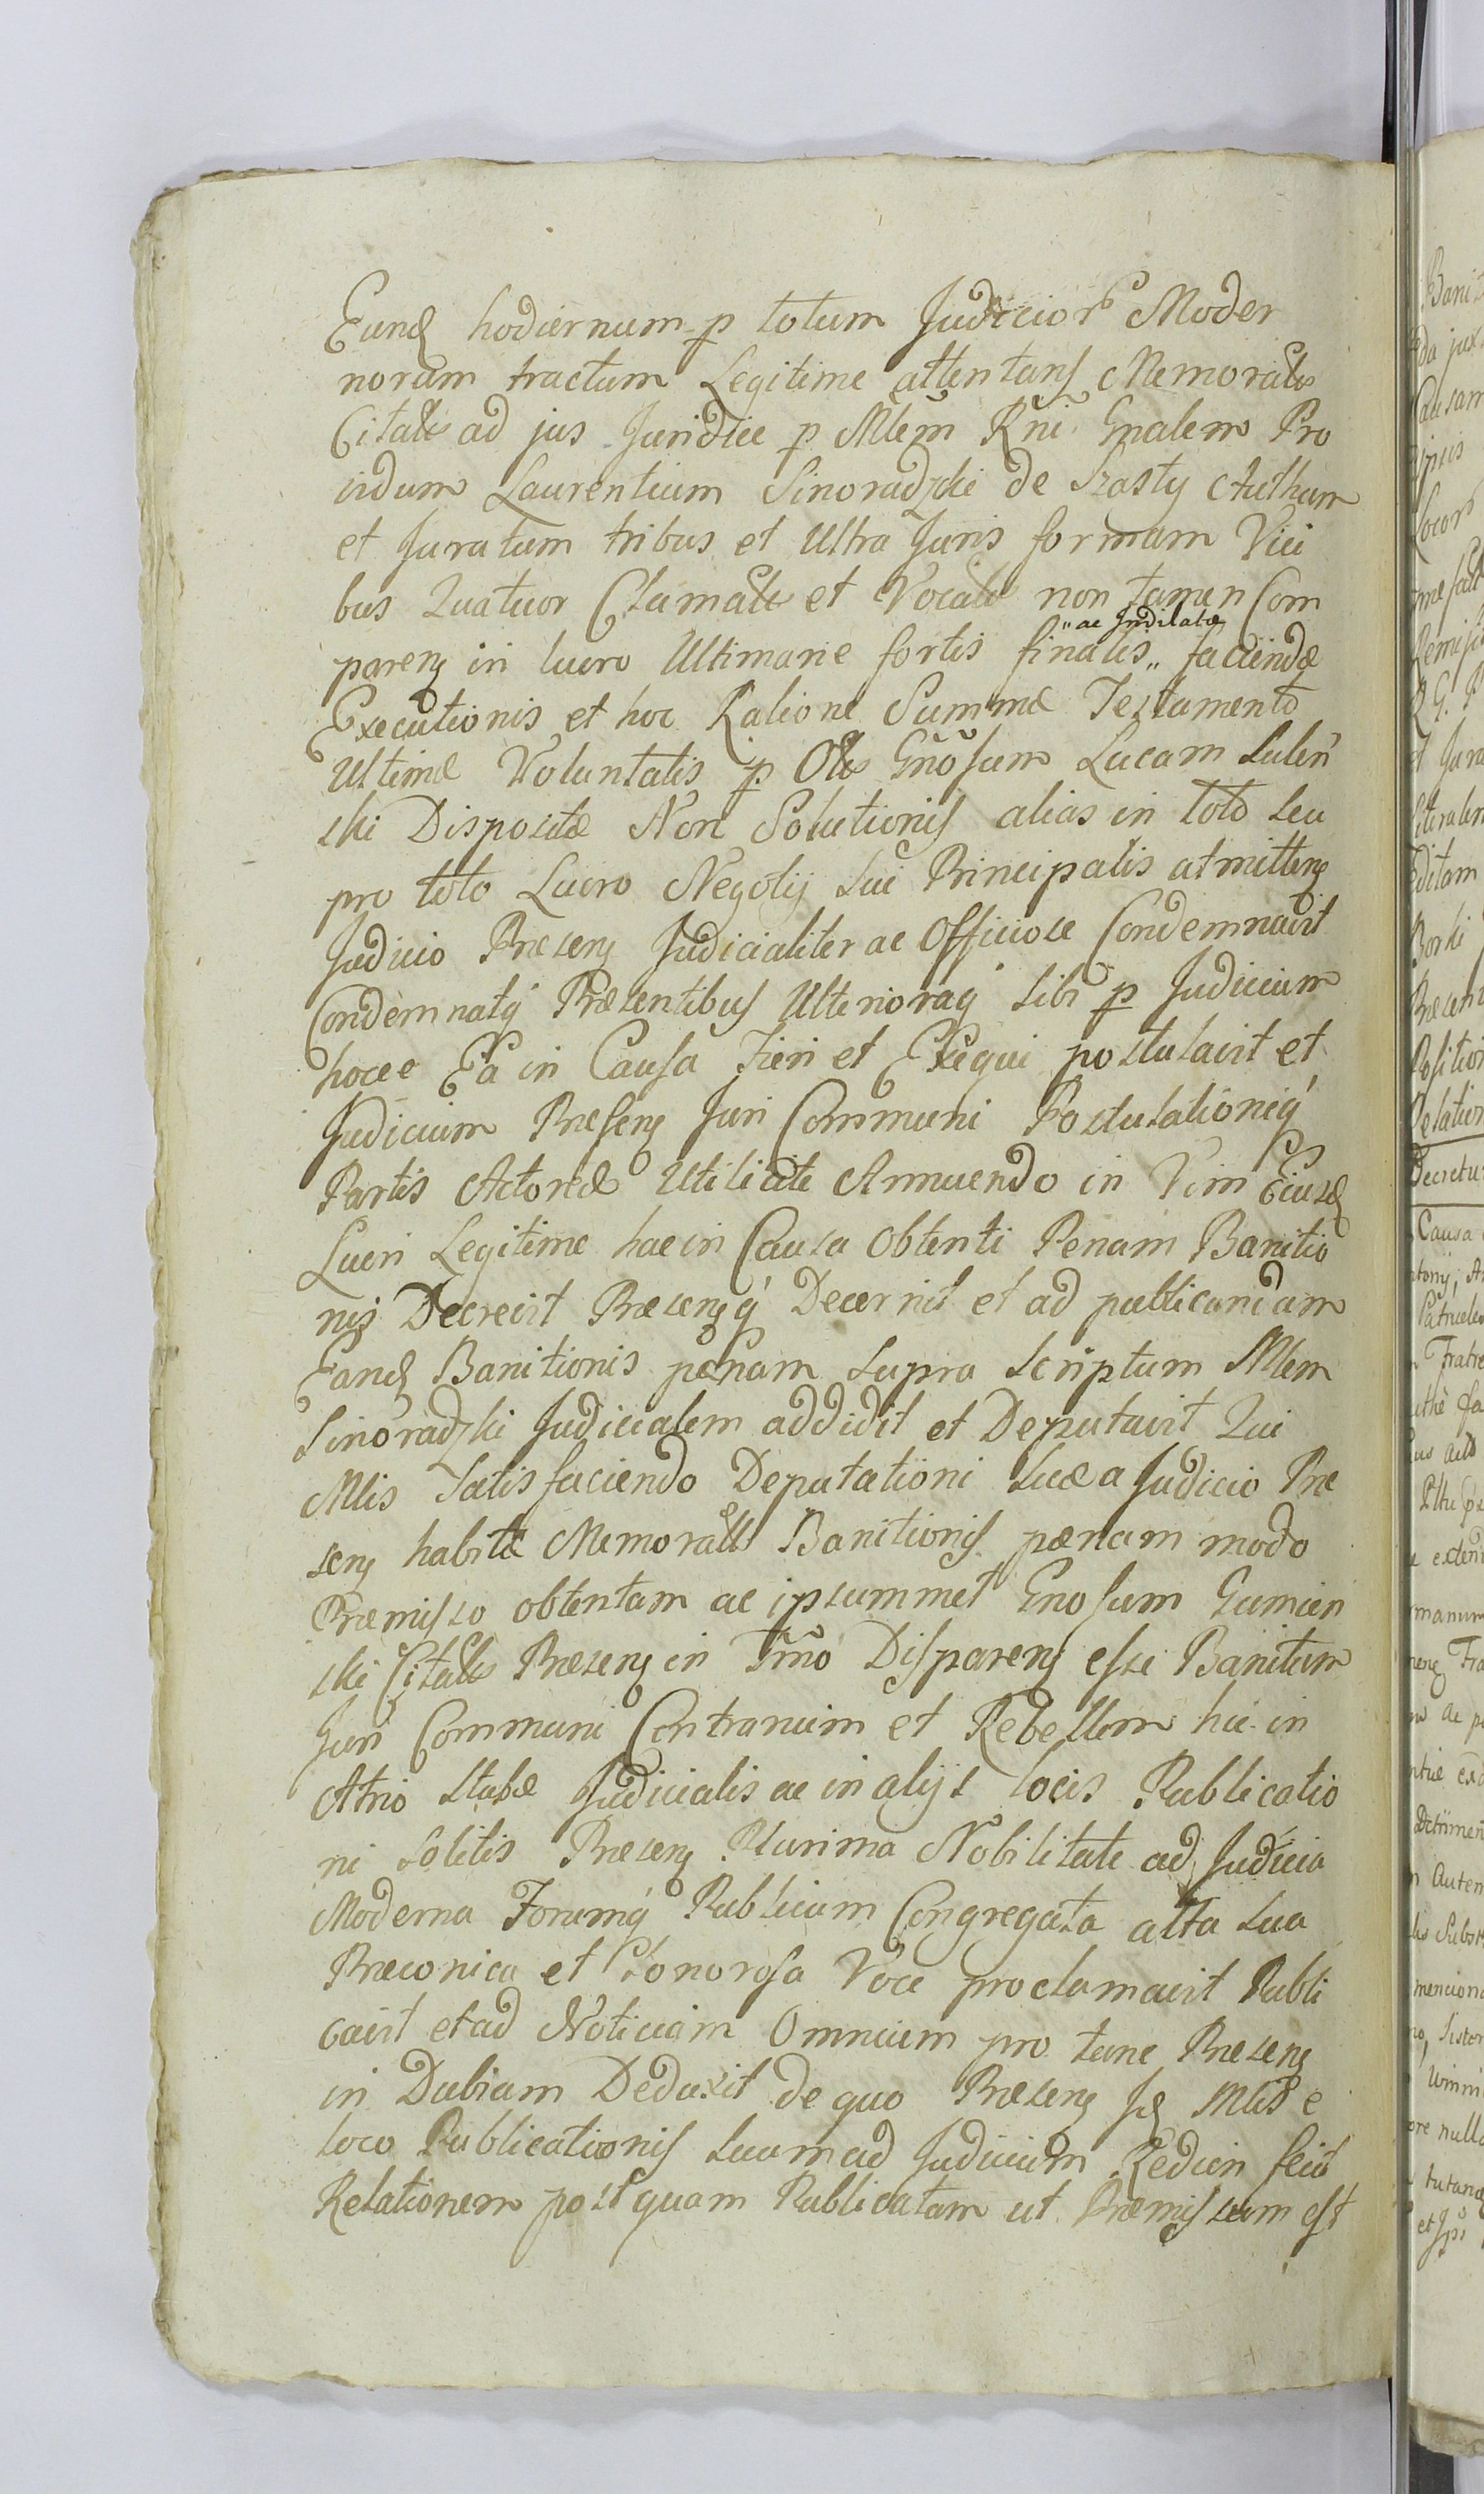 Eund hodiernum p totum Judicior Moder
norum tractum Legitime attentans Memorats
Citats ad jus Juridice p Mlem Rni Gnalem Pro
vidum Laurentium Sinoradzki de Szasty Authum
et Juratum tribus et Ultra Juris formam Vici
bus Quatuor Clamats et Vocats non tamen Com
parens in lucro Ultimarie fortis finalis „ ac Indilatæ „ faciendæ
Executionis et hoc Ratione Summæ Testamento
Ultimæ Voluntatis p Ols Gnosum Lucam Suleń
ski Dispositæ Non Solutionis alias in toto seu
pro toto Lucro Negotij sui Principalis atmittens
Judicio Præsens Judicialiter ac Officiose Condemnavit
Condemnatq Præsentibus Ulterioraq sibi p Judicium
hocce Ea in Causa Fieri et Exequi postulavit et
Judicium Præsens Juri Communi Postulationiq
Partis Actoreæ Utilitate Annuendo in Vim Eiusd
Lucri Legitime hac in Causa Obtenti Penam Banitio
nis Decrevit Præsensq Decernit et ad publicandam
Eand Banitionis pænam supra scriptum Mlem
Sinoradzki Judicialem addidit et Deputavit Qui
Mlis Satisfaciendo Deputationi suæ a Judicio Præ
sens habitæ Memorats Banitionis pænam modo
Præmisso obtentam ac ipsummet Gnosum Gumien
ski Citats Præsens in Tmo Disparens esse Banitum
Juri Communi Contrarium et Rebellem hic in
Atrio stubæ Judicialis ac in alijs locis Publicatio
ni solitis Præsens Plurima Nobilitate ad Judicia
Moderna Forumq Publicum Congregata alta sua
Præconica et Sonorosa Voce proclamavit Publi
cavit et ad Noticiam Omnium pro tunc Præsens
in Dubiam Deduxit de quo Præsens Mlis e
loco Publicationis suam ad Judicium Rediens fecit
Relationem post quam Publicatam ut Præmissum est